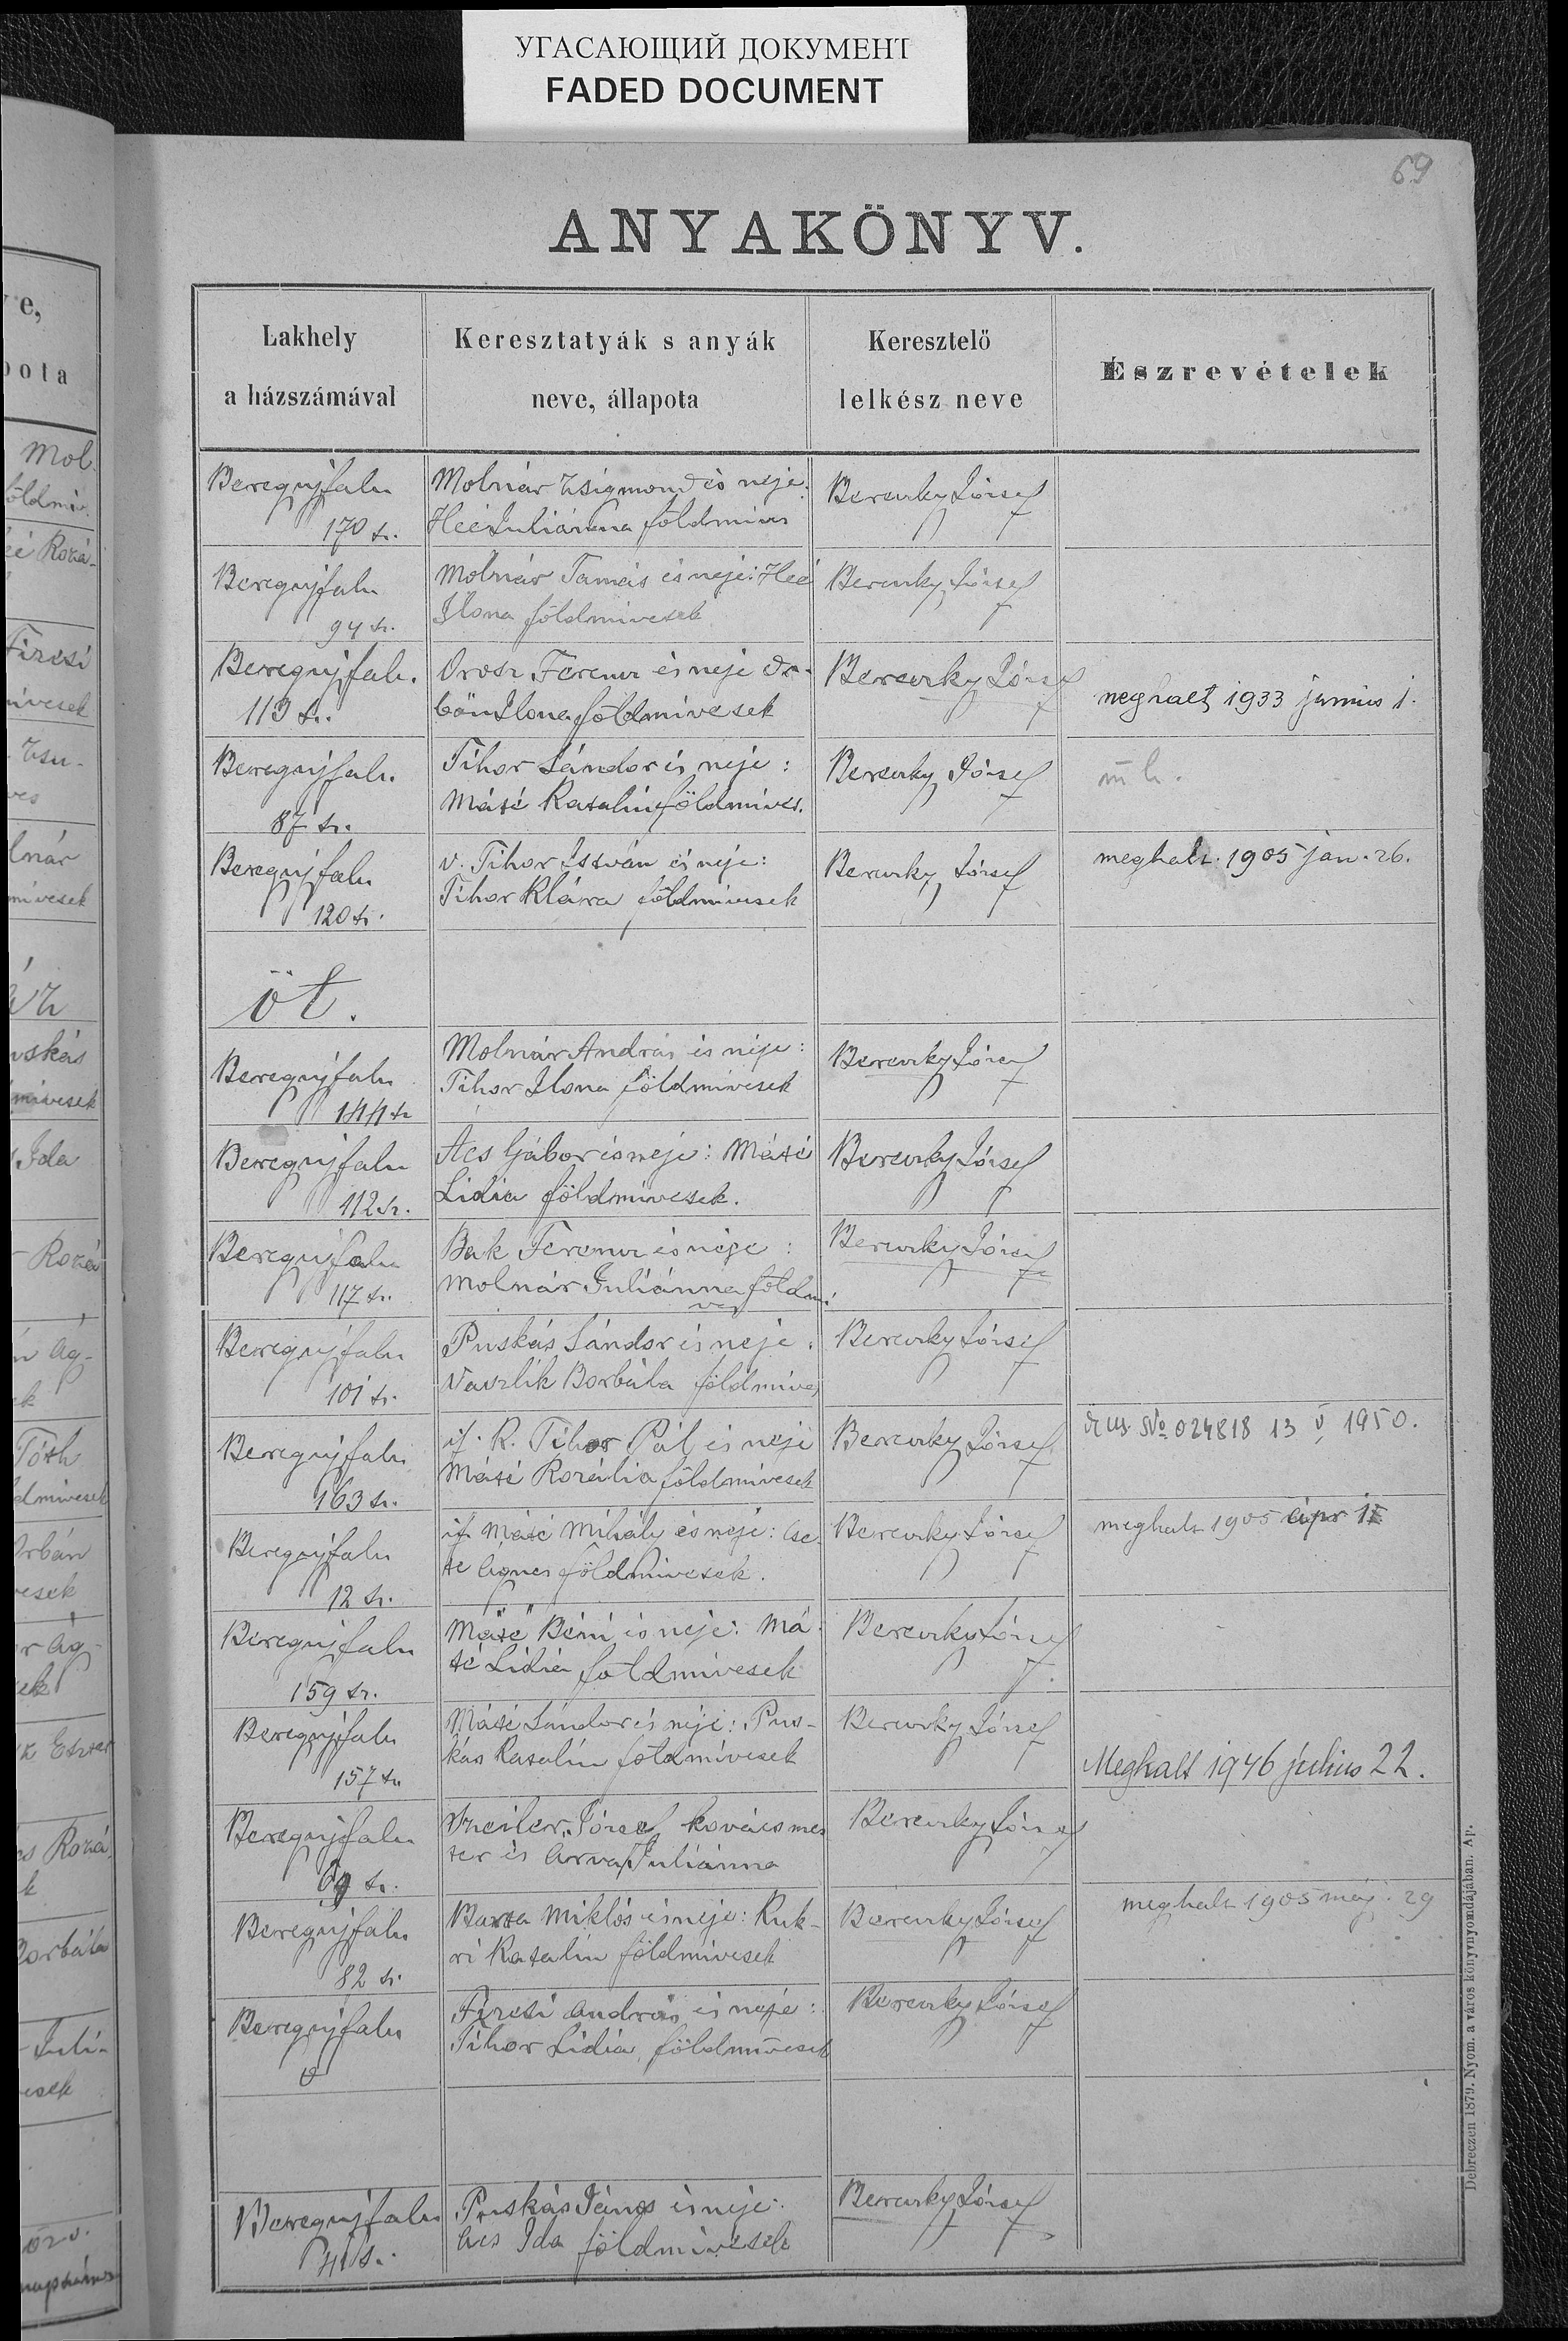 УГАСАЮЩИЙ ДОКУМЕНТ
FADED DOCUMENT
69
ANYAKÖNYV.
Lakhely
a házszámával
Keresztatyák s anyák
neve, állapota
Keresztelő
lelkész neve
Észrevételek
Beregujfalu
170 sz.
Molnár Zsigmond és neje:
Heé Juliánna földmives
Bereczky József
Beregujfalu
94 sz.
Molnár Tamás és neje: Heé
Ilona földmivesek
Bereczky József
Beregujfalu
113 sz.
Orosz Ferencz és neje Or-
bán Ilona földmivesek
Bereczky József
meghalt 1933 junius 1.
Beregujfalu
87 sz.
Tihor Sándor és neje:
Máté Katalin földmives.
Bereczky József
m h.
Beregujfalu
120 sz.
v. Tihor István és neje:
Tihor Klára földmivesek
Bereczky József
meghalt 1905 jan. 26.
öt.
Beregujfalu
144 sz
Molnár András és neje:
Tihor Ilona földmivesek
Bereczky József
Beregujfalu
112 sz.
Ács Gábor és neje: Máté
Lidia földmivesek.
Bereczky József
Beregujfalu
117 sz.
Bak Ferencz és neje:
Molnár Juliánna földmi
ves
Bereczky József
Beregujfalu
101 sz.
Puskás Sándor és neje:
Vaszlik Borbála földmives
Bereczky József
Beregujfalu
163 sz.
if. K. Tihor Pál és neje
Máté Rozália földmivesek
Bereczky József
No 024818 13 V 1950.
Beregujfalu
12 sz.
if Máté Mihály és neje: Cse-
te Ágnes földmivesek.
Bereczky József
meghalt 1905 ápr
Beregujfalu
159 sz.
Máté Béni és neje: Má-
té Lidia földmivesek
Bereczky József
Beregujfalu
157 sz
Máté Sándor és neje: Pus-
kás Katalin földmivesek
Bereczky József
Meghalt 1946 julius 22.
Beregujfalu
69 sz.
József kovácsmes
ter és Árvay Juliánna
Bereczky József
Beregujfalu
82 sz.
Barta Miklós és neje: Kuk-
ri Katalin földmivesek
Bereczky József
meghalt 1905 máj. 29
Beregujfalu
Fizesi András és neje:
Tihor Lidia, földmivesek
Bereczky József
Beregujfalu
41 sz.
Puskás János és neje:
Ács Ida földmivesek
Bereczky József
Debreczen 1879. Nyom. a város könyvnyomdájában. Ap.